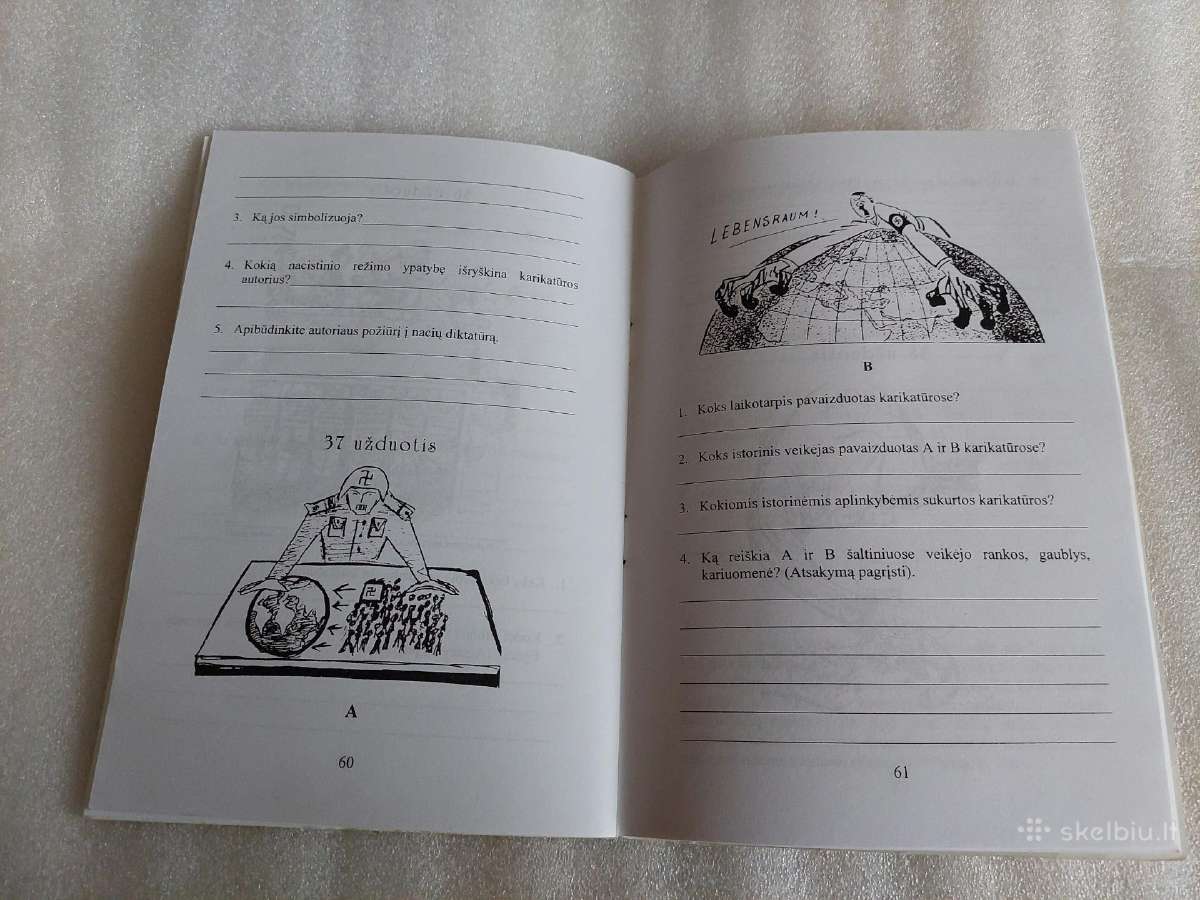 3. Ką jos simbolizuoja?
4. Kokią nacistinio režimo ypatybę išryškina karikatūros
autorius?
5. Apibūdinkite autoriaus požiūrį į nacių diktatūrą.
37 užduotis
A
60
LEBENSRAUM!
B
1. Koks laikotarpis pavaizduotas karikatūrose?
2. Koks istorinis veikėjas pavaizduotas A ir B karikatūrose?
3. Kokiomis istorinėmis aplinkybėmis sukurtos karikatūros?
4. Ką reiškia A ir B šaltiniuose veikėjo rankos, gaublys,
kariuomenė? (Atsakymą pagrįsti).
61
skelbiu.lt